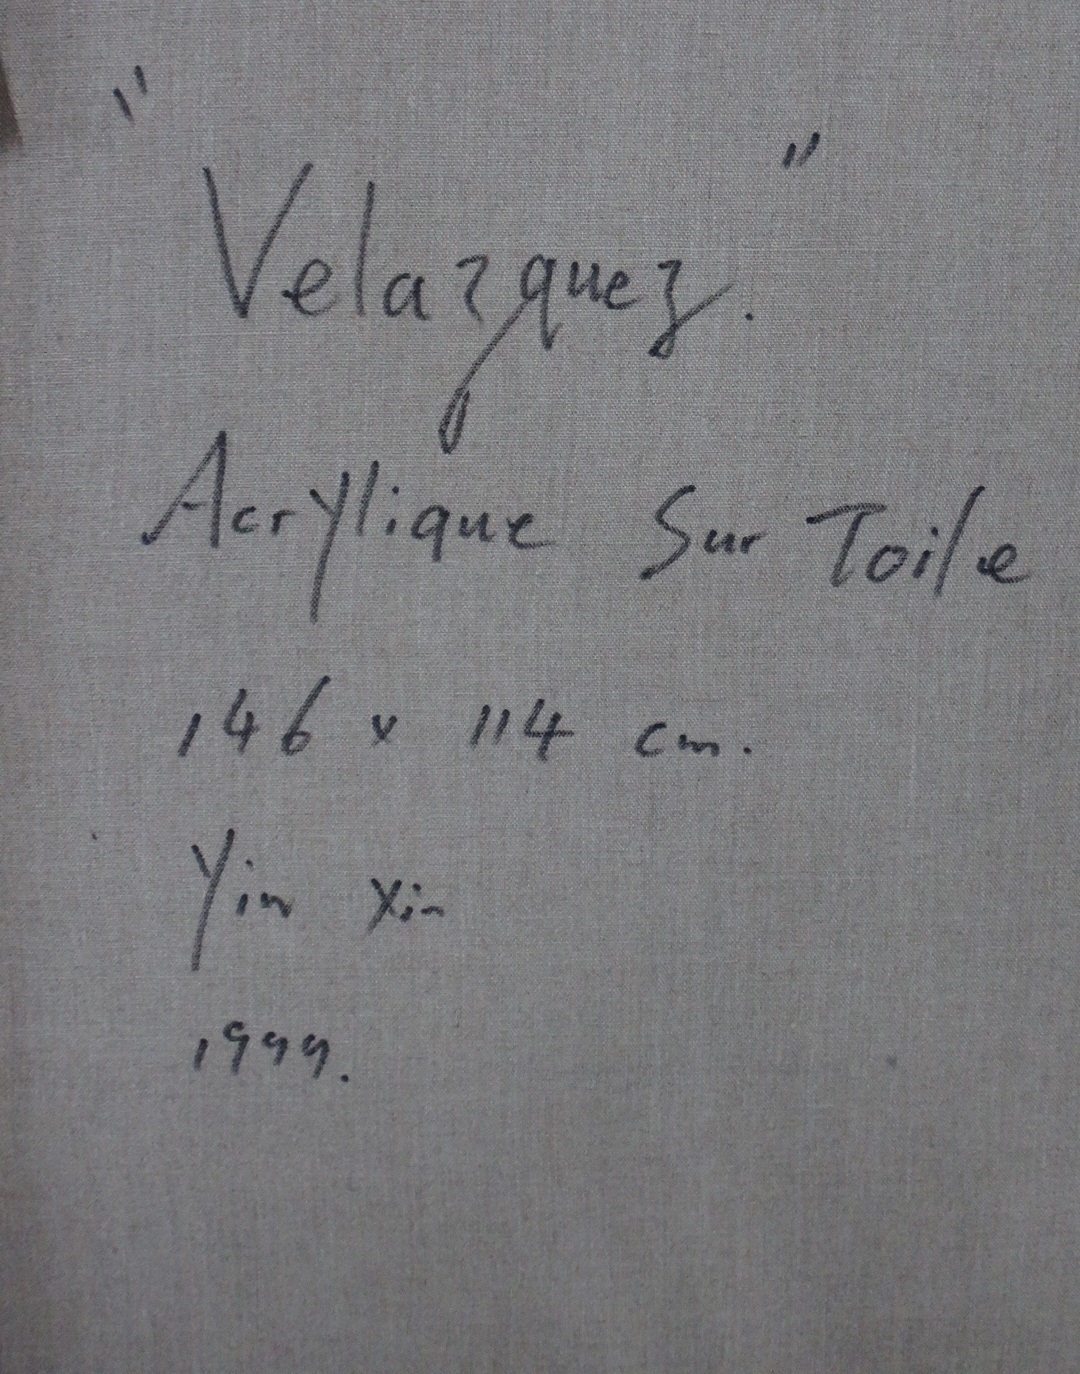 "Velazquez."
Acrylique Sur Toile
146 x 114 cm.
Yin Xin
1999.